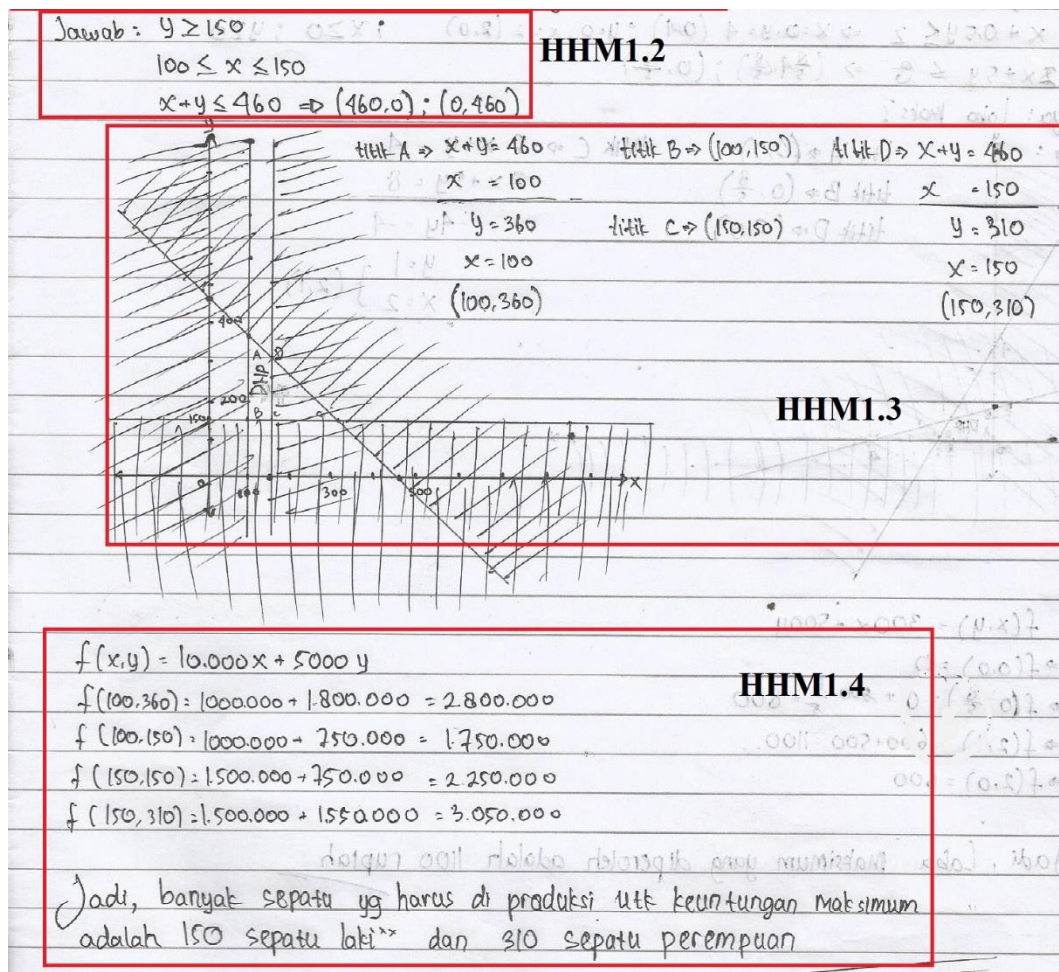 Jawab : y ≥ 150
HHM1.2
100 ≤ x ≤ 150
x+y ≤ 460 ⇒ (460,0) ; (0,460)
titik A ⇒ x+y = 460
x = 100
y = 360
x = 100
(100,360)
titik B ⇒ (100,150)
titik C ⇒ (150,150)
titik D ⇒ x+y = 460
x = 150
y = 310
x = 150
(150,310)
HHM1.3
y
400
A D
DHP
200
150 B C
0 100 300 500 x
f(x,y) = 10.000x + 5000y
HHM1.4
f(100,360) = 1000.000 + 1.800.000 = 2.800.000
f(100,150) = 1000.000 + 750.000 = 1.750.000
f(150,150) = 1.500.000 + 750.000 = 2.250.000
f(150,310) = 1.500.000 + 1550.000 = 3.050.000
Jadi, banyak sepatu yg harus di produksi utk keuntungan maksimum
adalah 150 sepatu laki** dan 310 sepatu perempuan